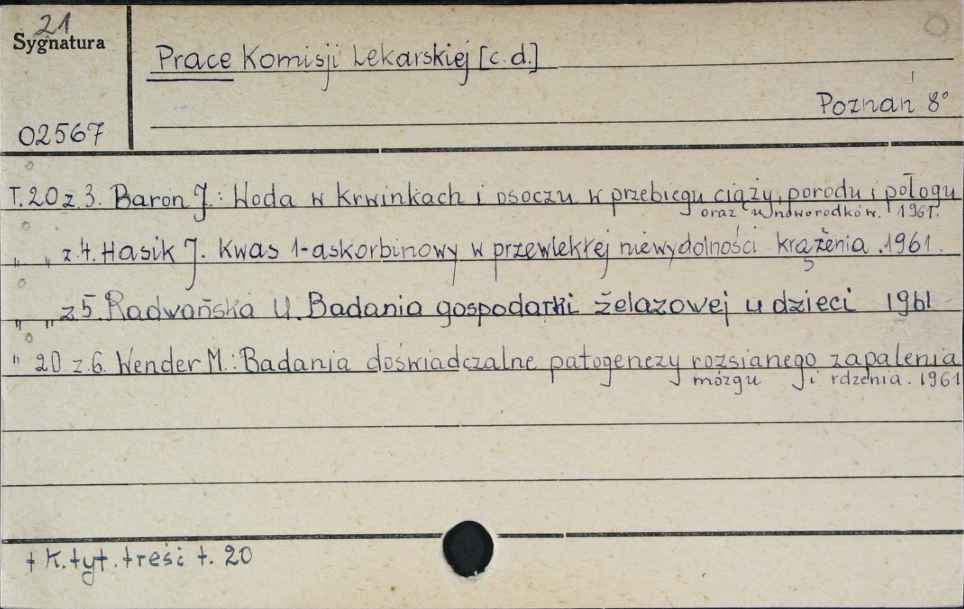 21
Sygnatura
Prace Komisji Lekarskiej [c.d.]
Poznań 8°
02567
T. 20 z. 3. Baron J.: Woda w krwinkach i osoczu w przebiegu ciąży, porodu i połogu
oraz u noworodków. 1961.
" " z. 4. Hasik J. Kwas l-askorbinowy w przewlekłej niewydolności krążenia. 1961.
" " z 5. Radwańska U. Badania gospodarki żelazowej u dzieci 1961
" 20 z. 6. Wender M.: Badania doświadczalne patogenezy rozsianego zapalenia
mózgu i rdzenia. 1961
+ K. tyt. treści t. 20